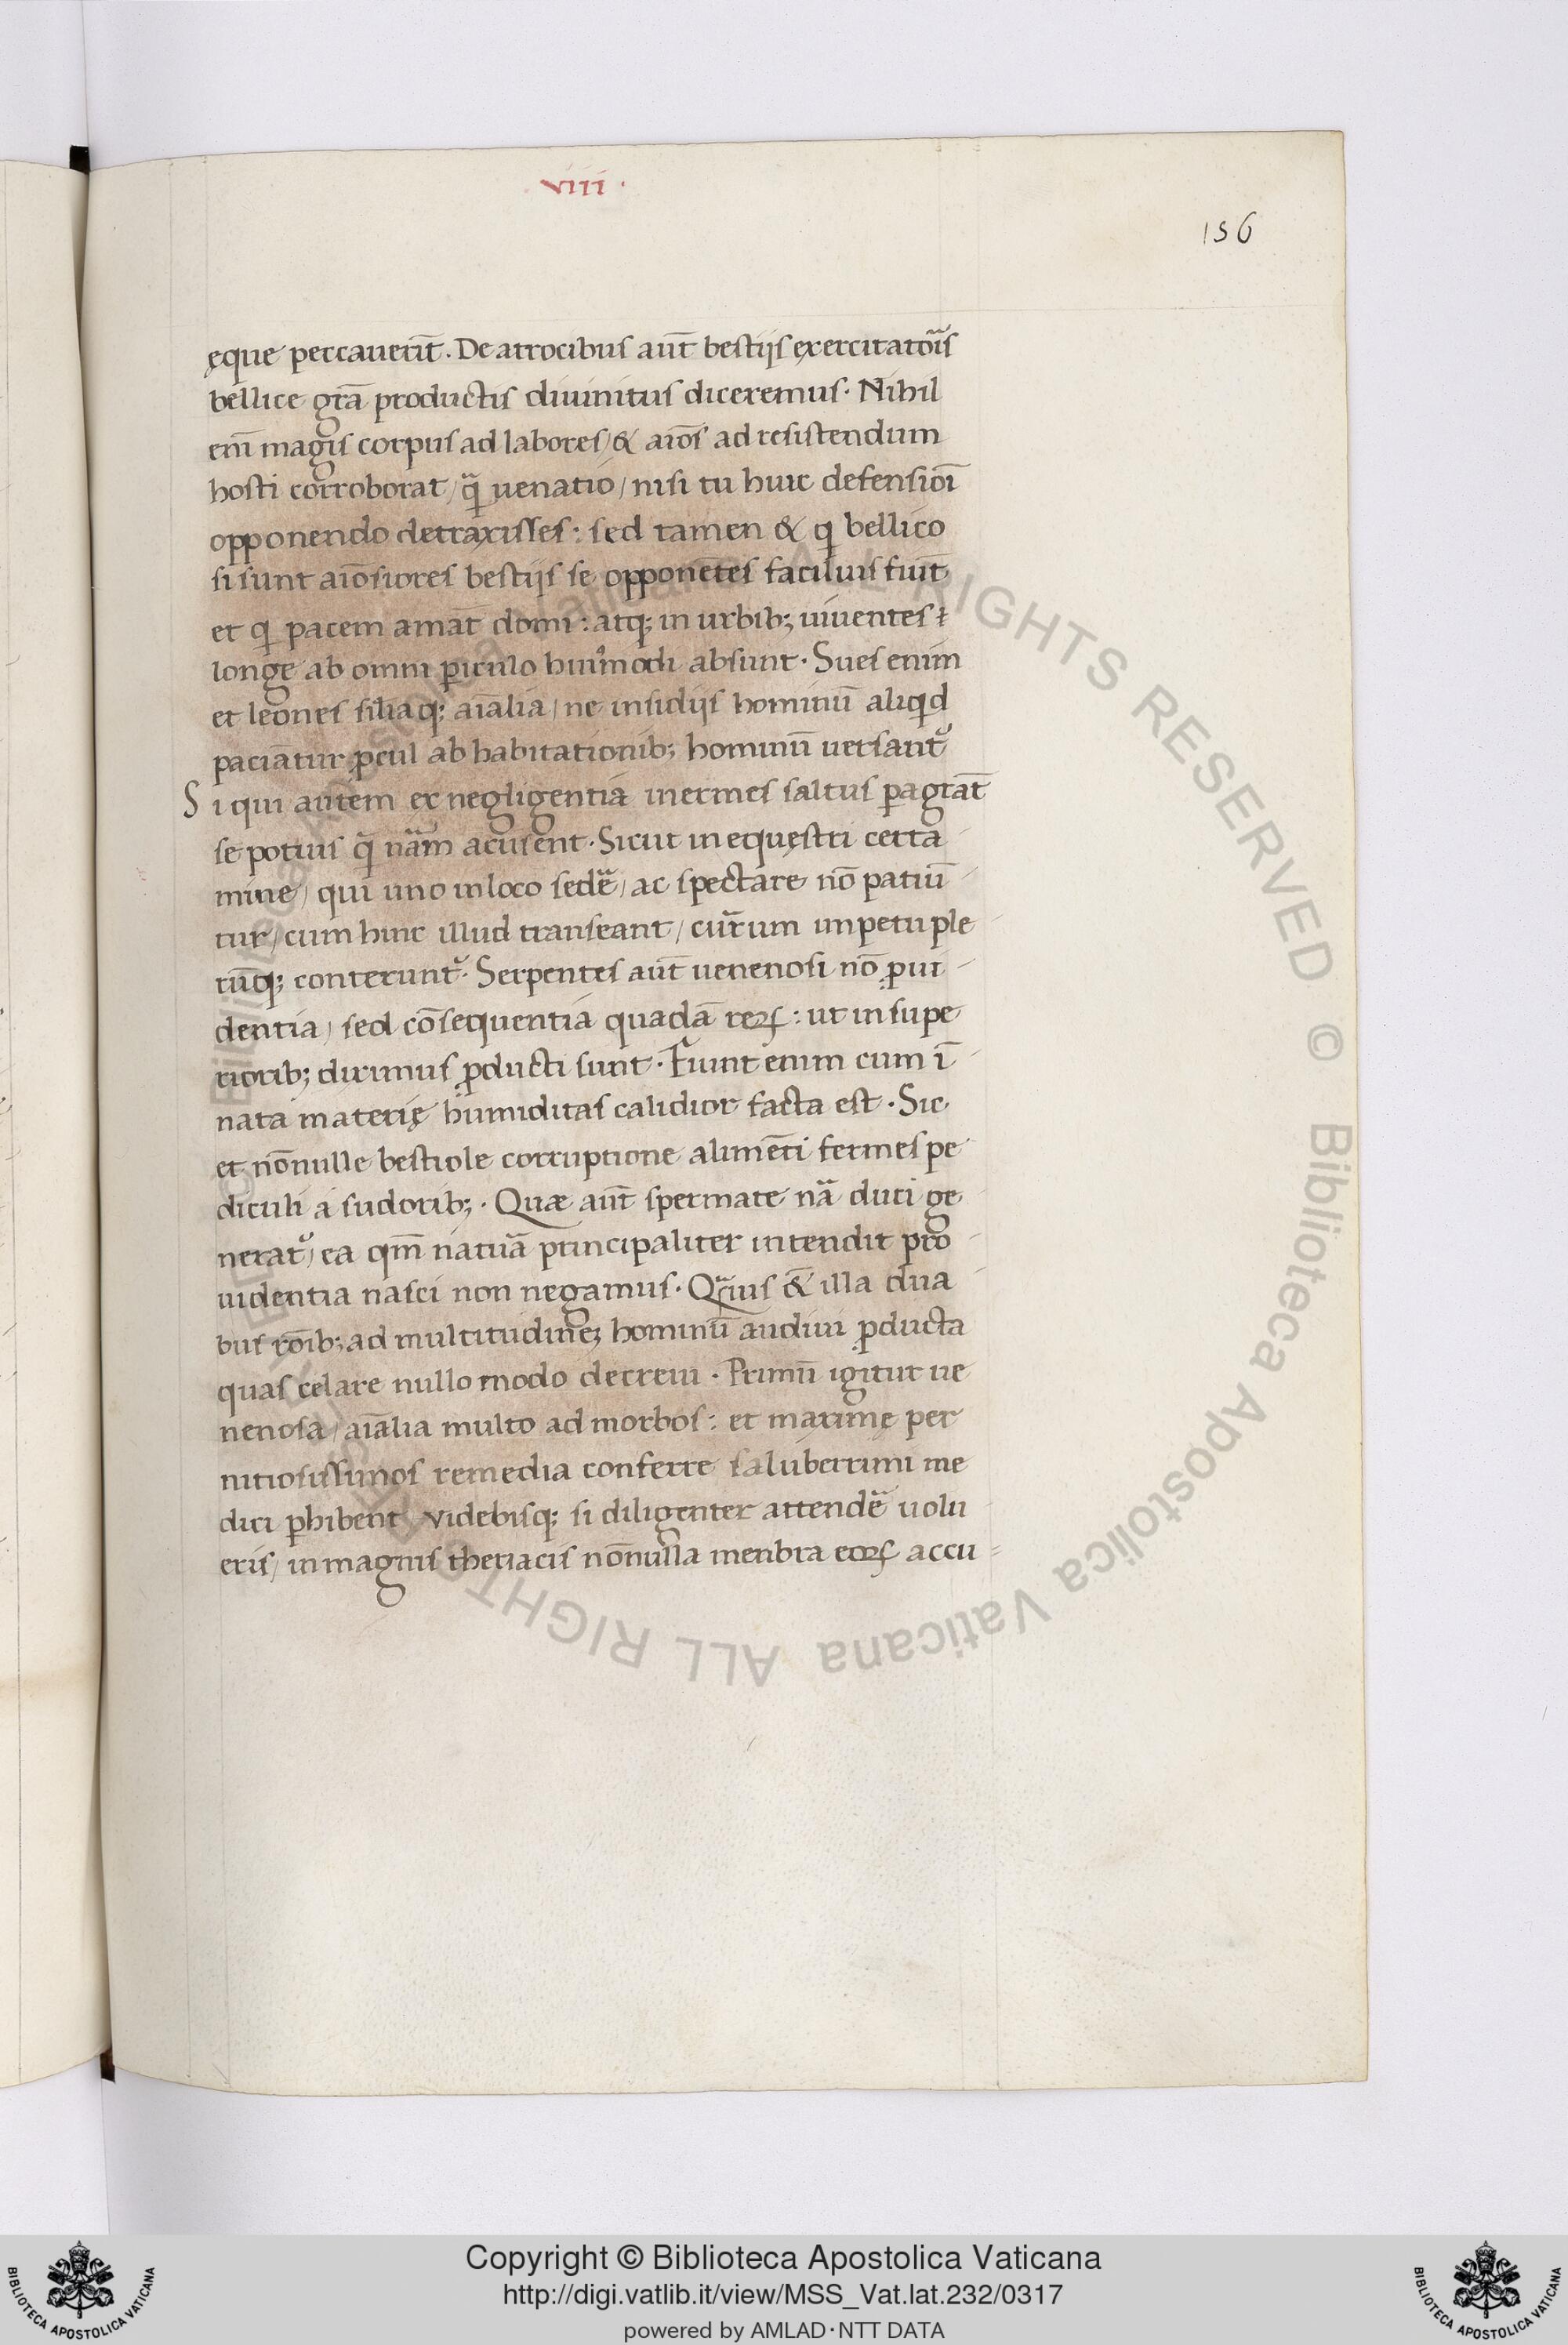 viii ·
156
ęque peccauerīt. De atrocibus aūt bestijs exercitatōıs̃
bellice grā productis diuinitus diceremus. Nihil
em̄ magis corpus ad labores/ & aıōs ad resistendum
hosti corroborat/ q̃ uenatio/ nisi tu huic defensioī
opponendo detraxisses: sed tamen & qͥ bellico
si sunt aıōsiores bestijs se opponētes facilius fiūt
et qͥ pacem amāt domi: atq; in urbib; uiuentes ꝉ
longe ab omni ꝑiculo huiꝰmodi absunt. Sues enim
et leones siliaq; aıālia/ ne insidijs hominū aliqͥd
paciātur ꝓcul ab habitationib; hominū uersant᷑
Si qui autem ex negligentia inermes saltus ꝑagrāt
se potius q̃ nãm acusent. Sicut in equęstri certa
mine/ qui uno in loco sedẽ/ ac spectare nō patiū
tur/ cum hinc illud transeant/ cur̃um impetu ple
rūq; conterunt᷑. Serpentes aūt uenenosi nō ꝓui
dentia/ sed cōsequentia quadā reꝝ: ut in supe
riorib; diximus ꝓducti sunt. Fiunt enim cum ī
nata materię humiditas calidior facta est. Sic
et nōnulle bestiole corruptione alimēti fermes pe
diculi a sudorib;. Quæ aūt spermate nã duci ge
nerat᷑/ ea qm̄ natuã principaliter intendit pro
uidentia nasci non negamus. Qͣuis &̄ illa dua
bus rōıb; ad multitudinē hominū audiui ꝓducta
quas celare nullo modo decreui. Primū igitur ue
nenosa/ aıālia multo ad morbos: et maximę per
nitiosissimos remedia conferre saluberrimi me
dici ꝑhibent/ videbisq; si diligenter attendẽ uolu
eris/ in magnis theriacis nōnulla menbra eoꝝ accu
© Biblioteca Apostolica Vaticana ALL RIGHTS RESERVED
Copyright © Biblioteca Apostolica Vaticana
http://digi.vatlib.it/view/MSS_Vat.lat.232/0317
powered by AMLAD·NTT DATA
BIBLIOTECA APOSTOLICA VATICANA
BIBLIOTECA APOSTOLICA VATICANA